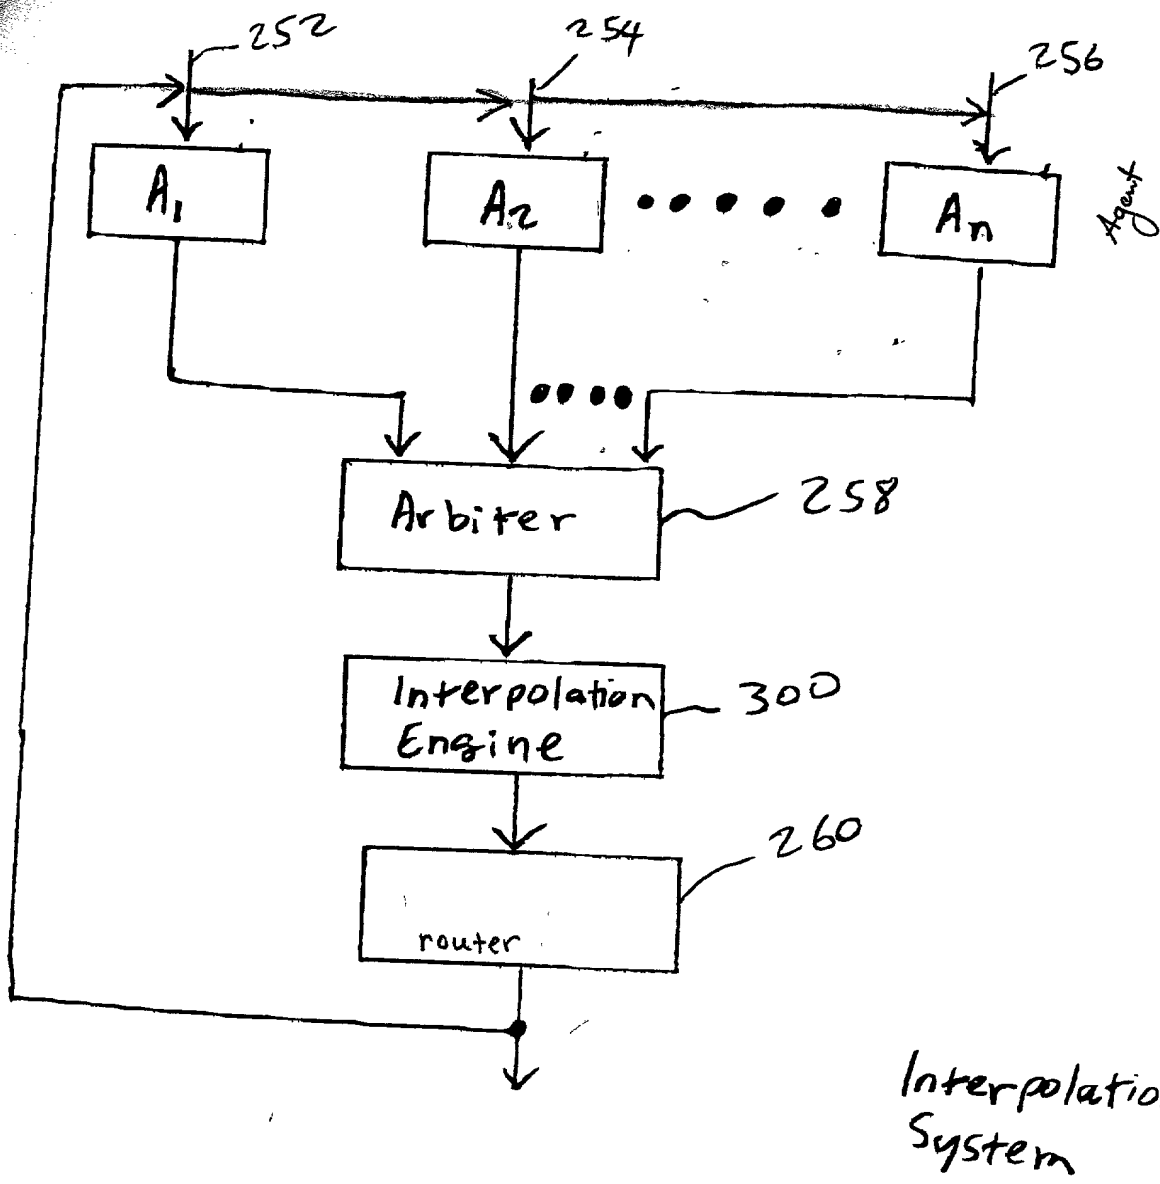 252
254
256
A1
A2
An
Agent
Arbiter
258
Interpolation
Engine
300
260
router
Interpolatio
System